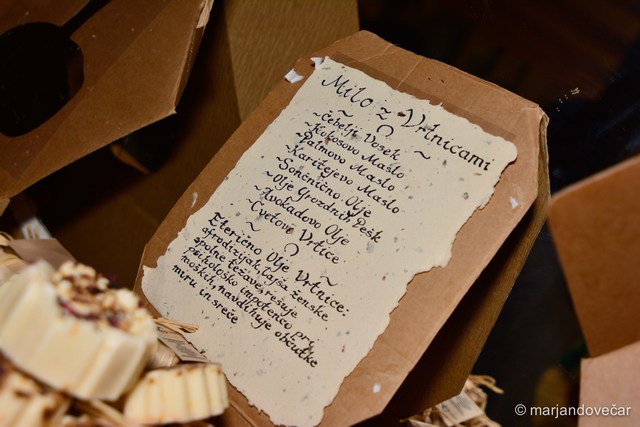 Milo z Vrtnicami
~ ~
~Čebelji Vosek
~Kokosovo Maslo
~Palmovo Maslo
~Karitejevo Maslo
~Sončnično Olje
~Olje Grozdnih Pešk
~Avokadovo Olje
~Cvetove Vrtice
~ ~
Eterično Olje Vrtnice:
afrodizijak, lajša ženske
spolne težave, rešuje
psihološko impotenco pri
moških, navdihuje občutke
miru in sreče
© marjandovečar